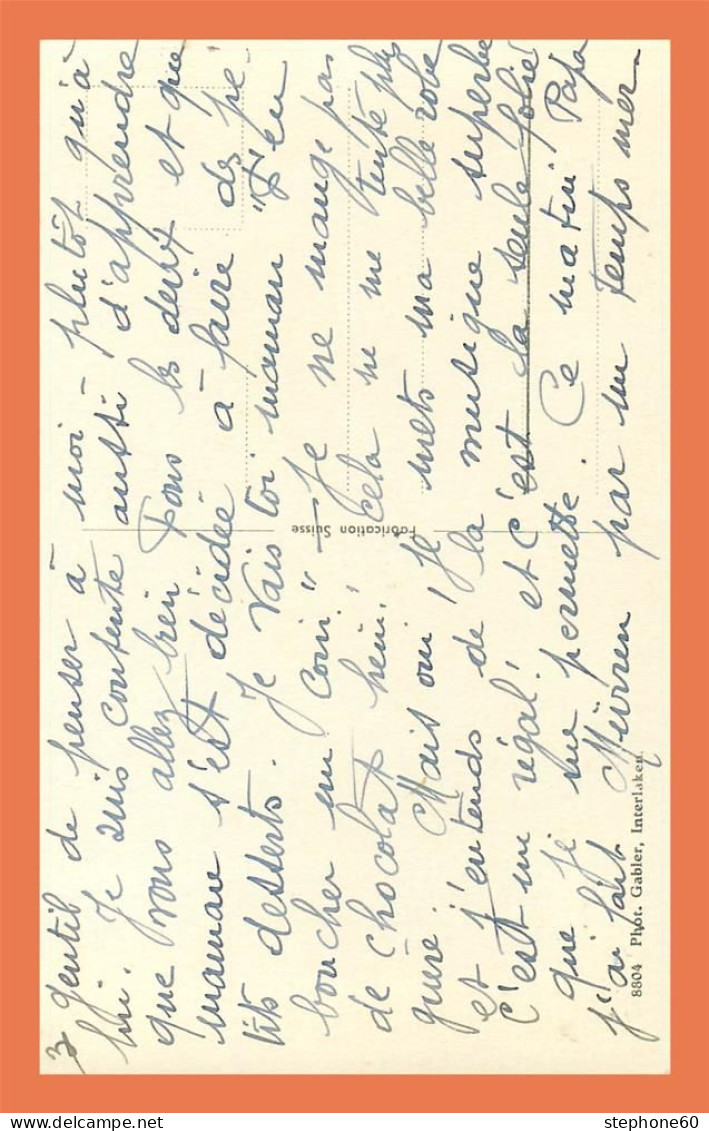 3
gentil de penser à moi – plutôt qu'à
lui. Je suis contente aussi d'apprendre
que vous allez bien tous les deux et que
maman s'est décidée à faire des pe-
tits desserts. Je vais toi maman "t'en
boucher un coin" – Je ne mange pas
de chocolat hein! cela ne me tente plus
guère. Mais oui! Je mets ma belle robe
et j'entends de la musique superbe
C'est un régal! et c'est la seule folie
que je me permette. Ce matin Papa
j'ai fait Mürren par un temps mer-
Fabrication Suisse
8804 Phot. Gabler, Interlaken.
stephone60